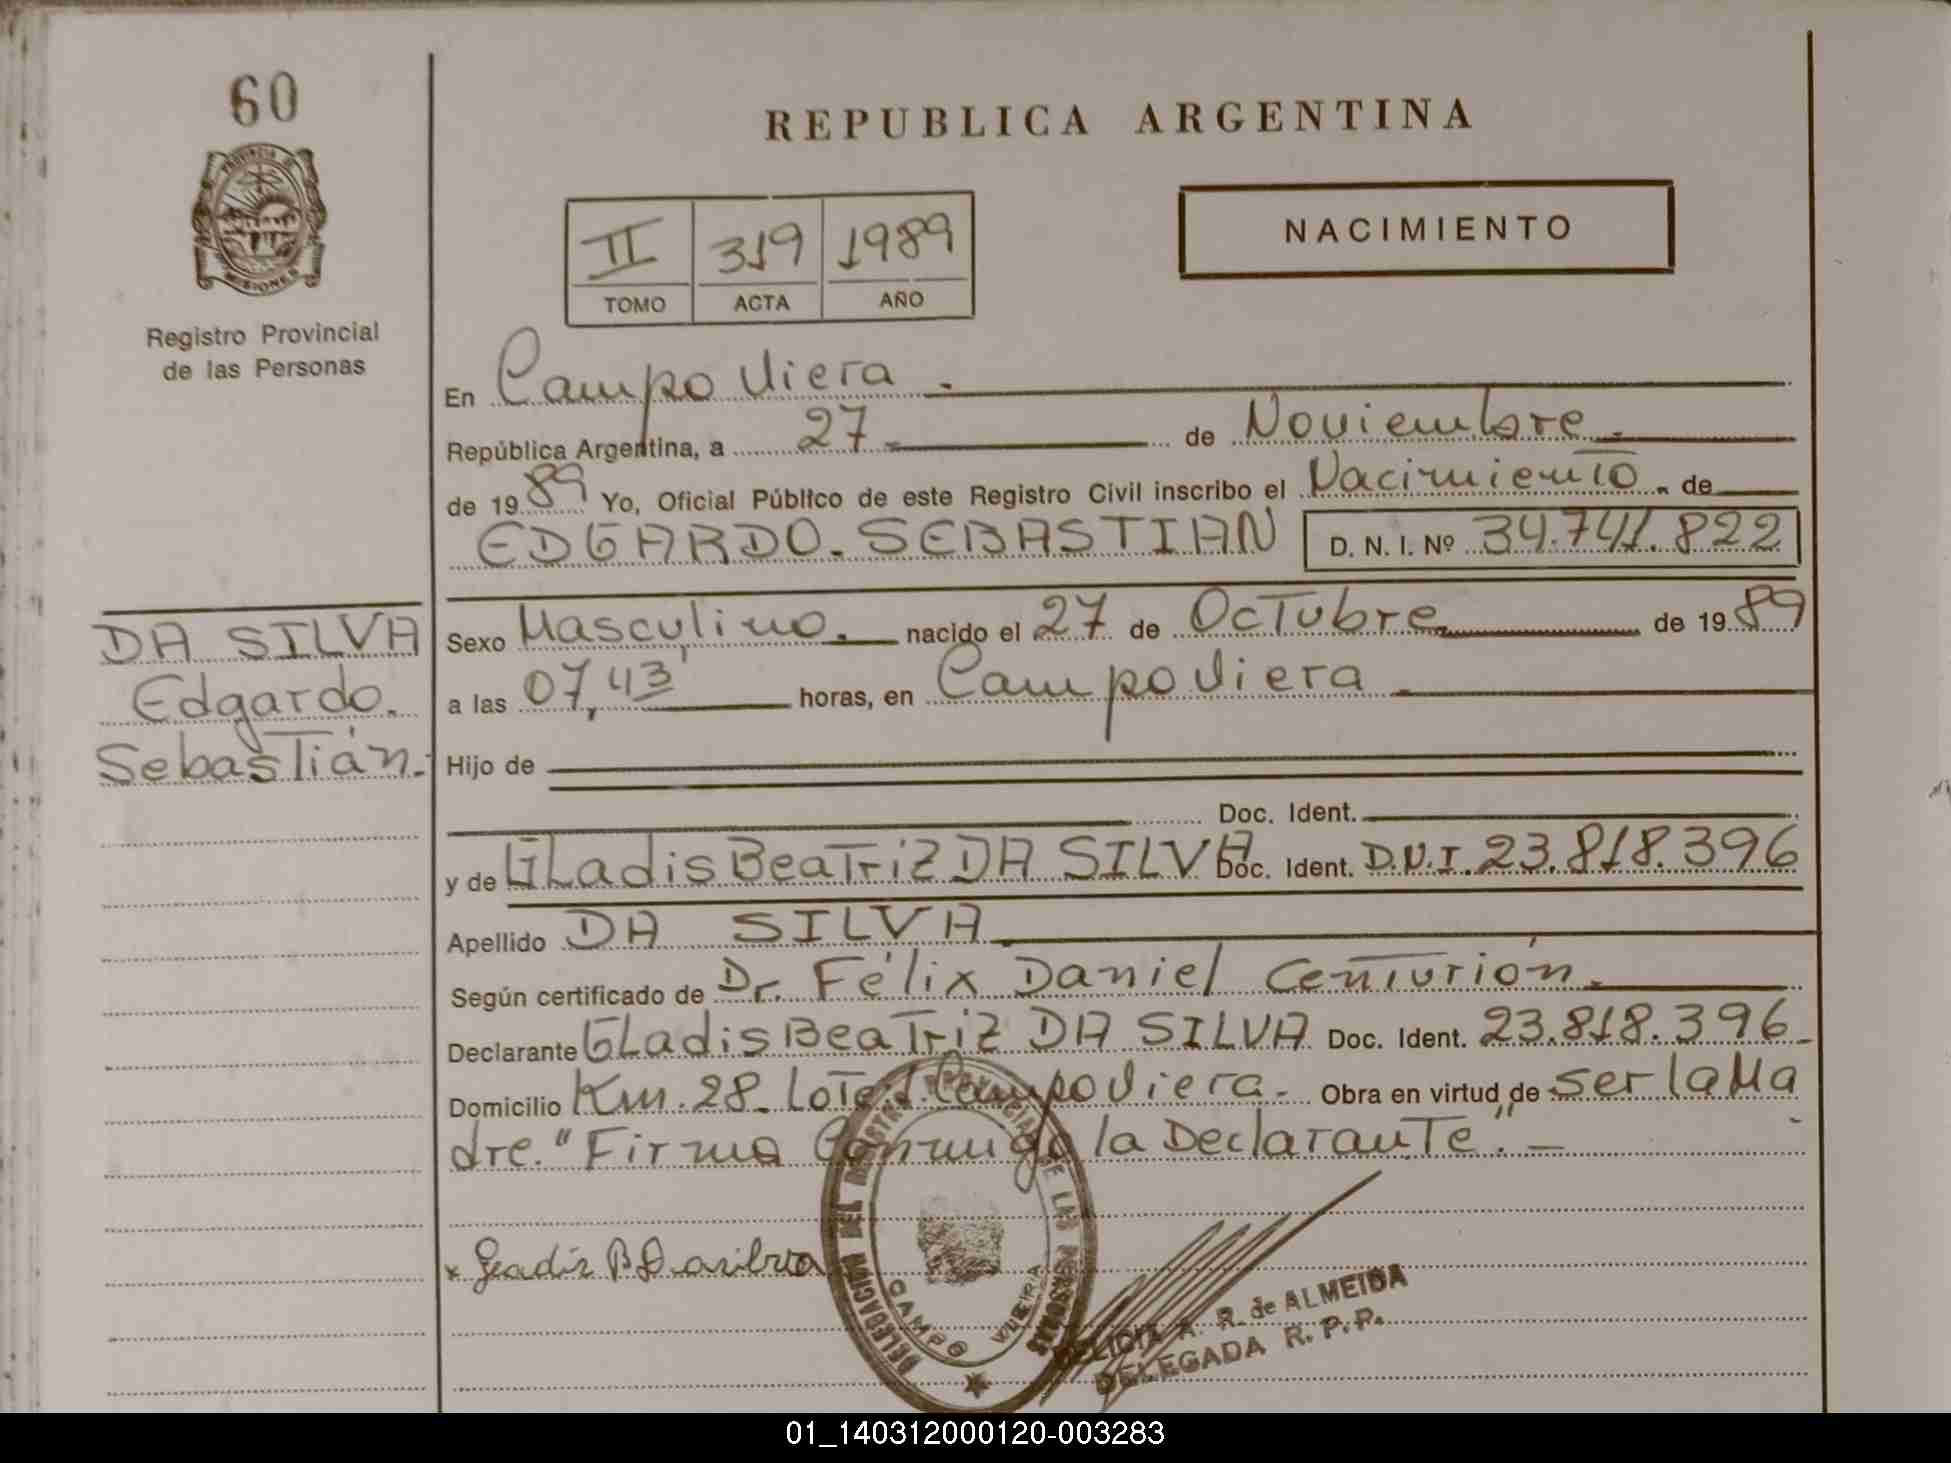 60
PROVINCIA DE
MISIONES
Registro Provincial
de las Personas
REPUBLICA ARGENTINA
II 319 1989
TOMO ACTA AÑO
NACIMIENTO
En Campo Viera.
República Argentina, a 27 de Noviembre.
de 1989 Yo, Oficial Público de este Registro Civil inscribo el Nacimiento. de
EDGARDO. SEBASTIAN D. N. I. Nº 34.741.822
DA SILVA
Edgardo.
Sebastián.-
Sexo Masculino. nacido el 27 de Octubre de 1989
a las 07,43' horas, en Campo Viera
Hijo de
Doc. Ident.
y de GLadis BeaTriz DA SILVA Doc. Ident. D.N.I. 23.818.396
Apellido DA SILVA
Según certificado de Dr. Félix Daniel Centurión.
Declarante GLadis BeaTriz DA SILVA Doc. Ident. 23.818.396
Domicilio Km. 28. Lote Campo Viera. Obra en virtud de ser la Ma
dre. "Firma Conmigo la Declarante".-
x Gladis B Dasilva
DELEGACION DEL REGISTRO PROVINCIAL DE LAS PERSONAS
CAMPO VIERA
A. R. de ALMEIDA
DELEGADA R. P. P.
01_140312000120-003283